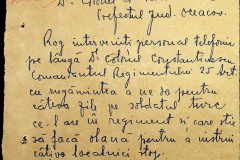 Dl. Colonel
Prefectul Jud. Oceacov.
Rog interveniți personal telefonic
pe lângă Dl Colonel Constantinescu
Comandantul Regimentului 25 Art.
cu rugămintea a ne da pentru
câteva zile pe soldatul turc
ce-l are în regiment și care știe
să facă olană pentru a instrui
câțiva localnici